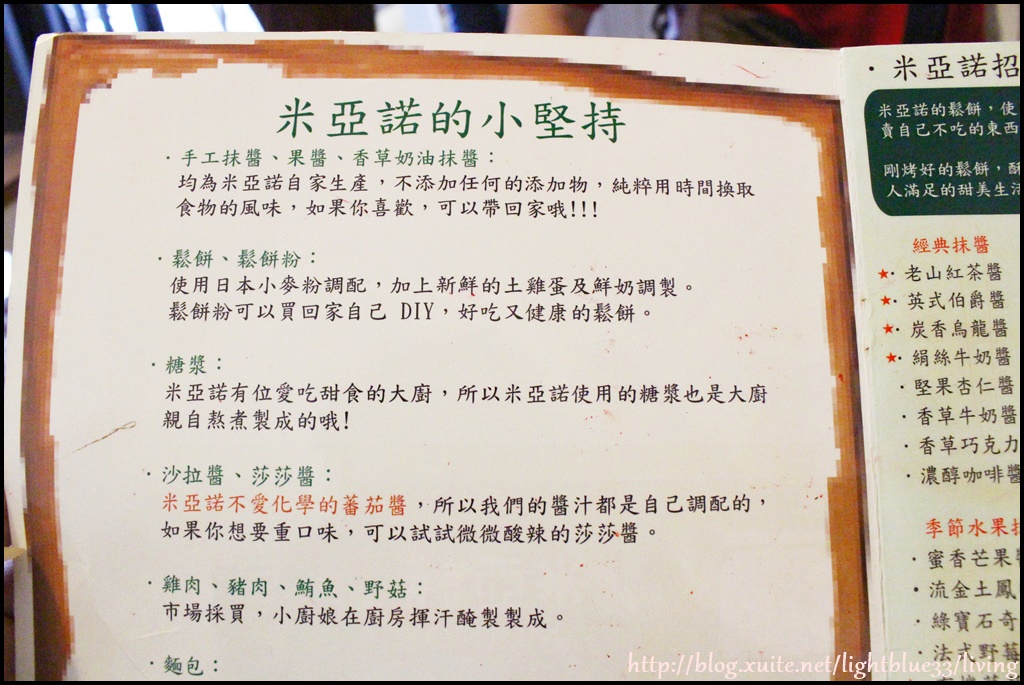 米亞諾的小堅持
·手工抹醬、果醬、香草奶油抹醬:
均為米亞諾自家生產,不添加任何的添加物,純粹用時間換取
食物的風味,如果你喜歡,可以帶回家哦!!!
·鬆餅、鬆餅粉:
使用日本小麥粉調配,加上新鮮的土雞蛋及鮮奶調製。
鬆餅粉可以買回家自己 DIY,好吃又健康的鬆餅。
·糖漿:
米亞諾有位愛吃甜食的大廚,所以米亞諾使用的糖漿也是大廚
親自熬煮製成的哦!
·沙拉醬、莎莎醬:
米亞諾不愛化學的蕃茄醬,所以我們的醬汁都是自己調配的,
如果你想要重口味,可以試試微微酸辣的莎莎醬。
·雞肉、豬肉、鮪魚、野菇:
市場採買,小廚娘在廚房揮汗醃製製成。
·麵包:
·米亞諾招
米亞諾的鬆餅,使
賣自己不吃的東西
剛烤好的鬆餅,酥
人滿足的甜美生活
經典抹醬
★·老山紅茶醬
★·英式伯爵醬
★·炭香烏龍醬
★·絹絲牛奶醬
·堅果杏仁醬
·香草牛奶醬
·香草巧克力
·濃醇咖啡醬
季節水果抹
·蜜香芒果醬
·流金土鳳
·綠寶石奇
·法式野莓
http://blog.xuite.net/lightblue33/living